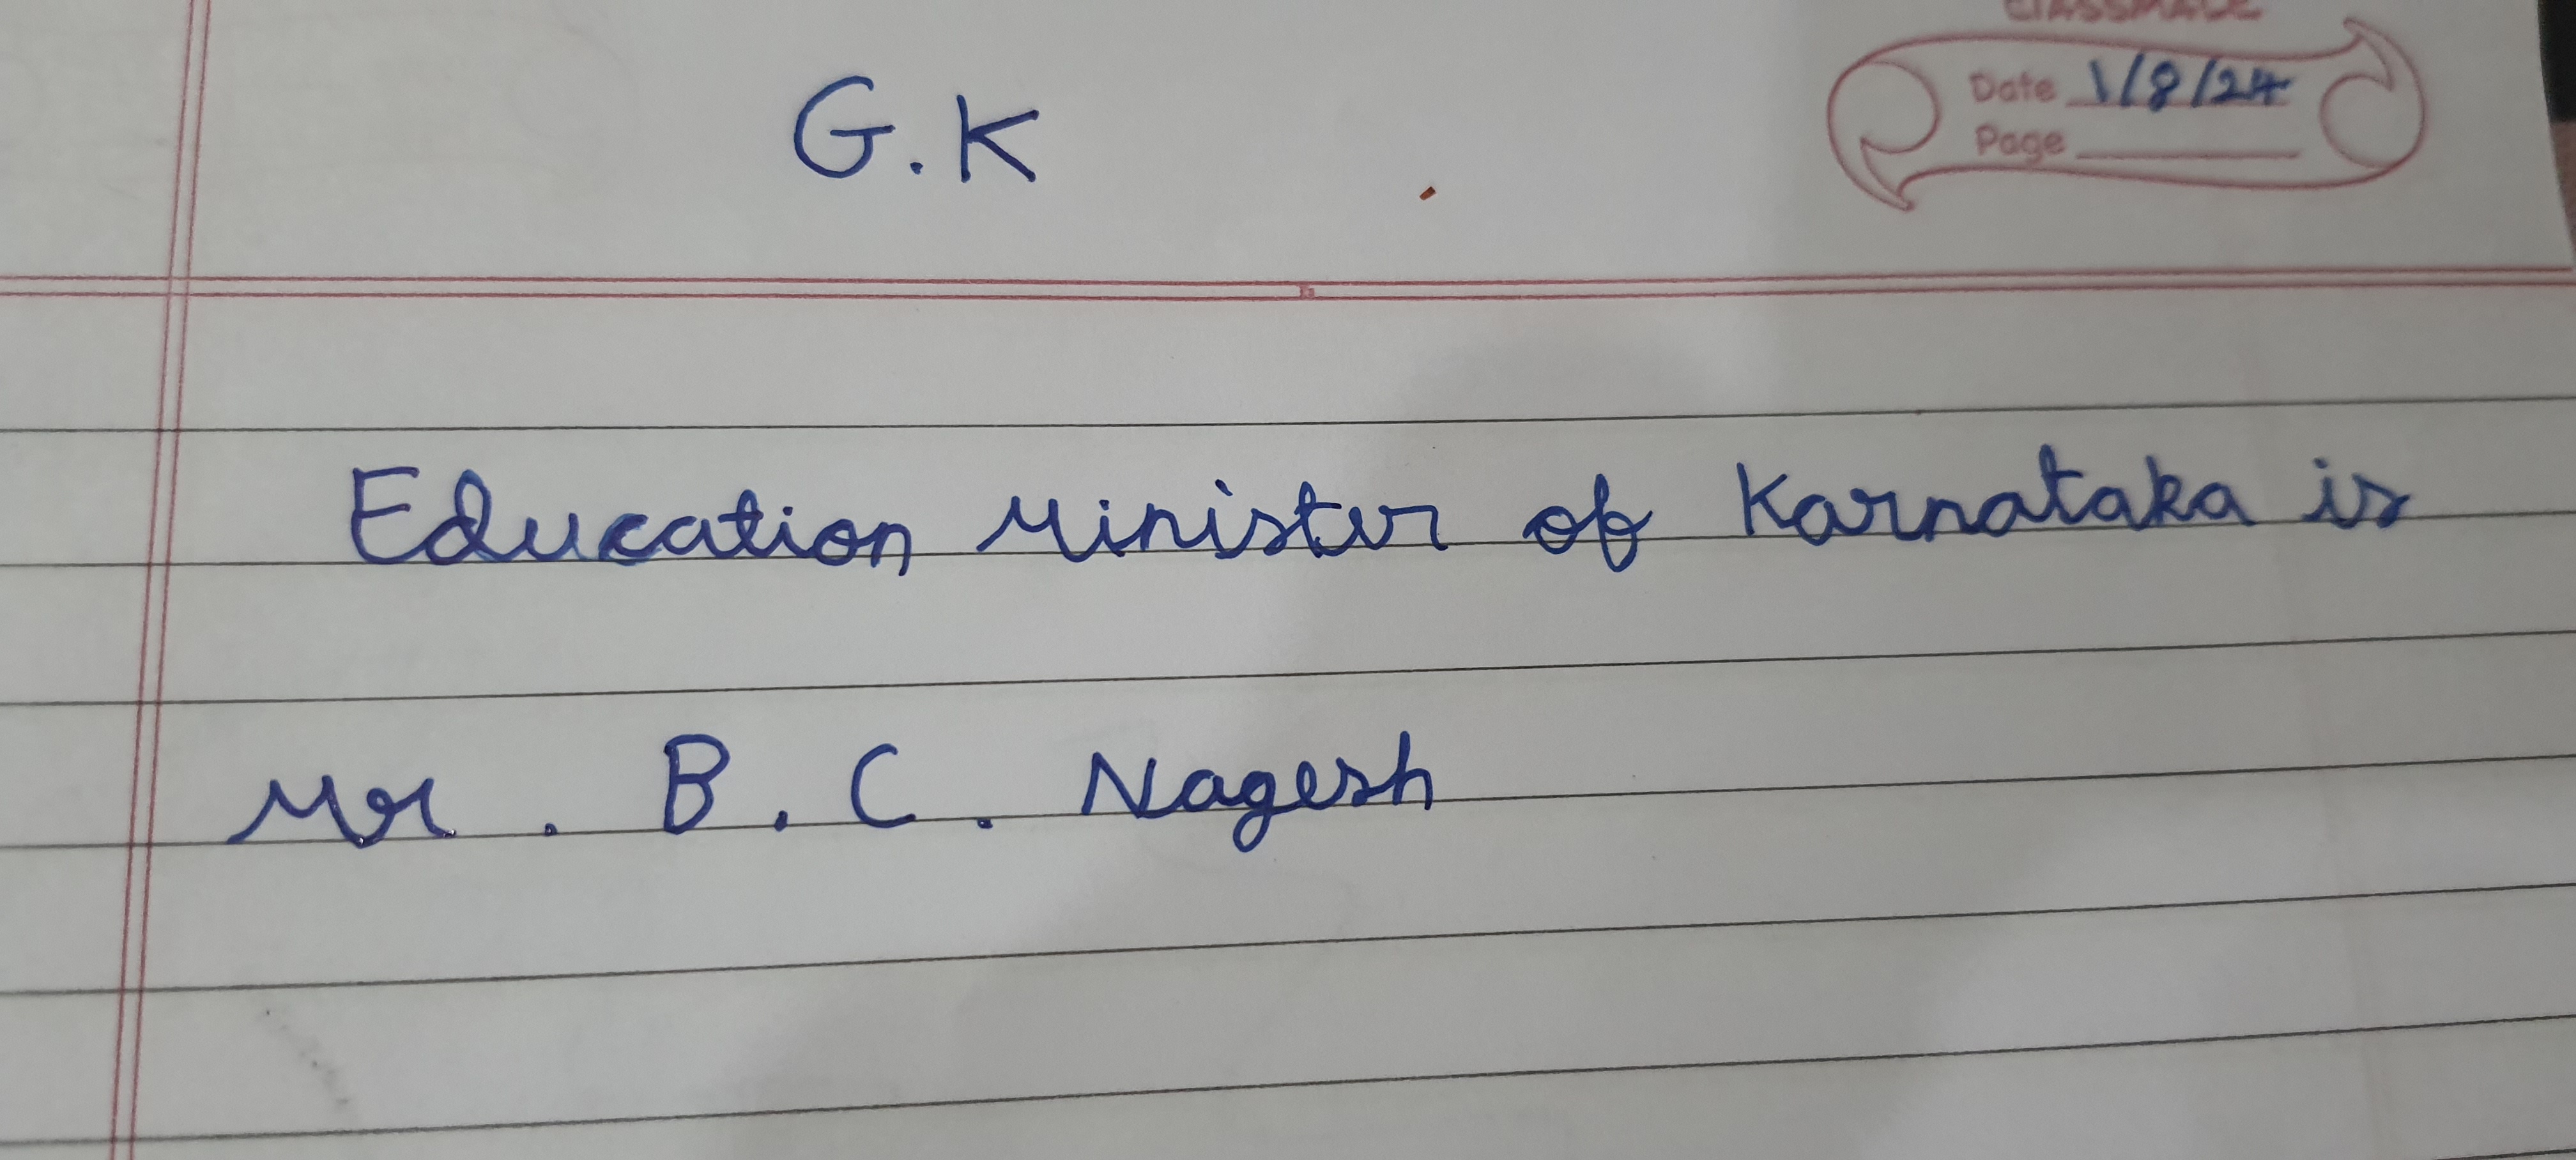 classmate
Date 1/8/24
Page
G.K
Education Minister of Karnataka is
Mr. B. C. Nagesh